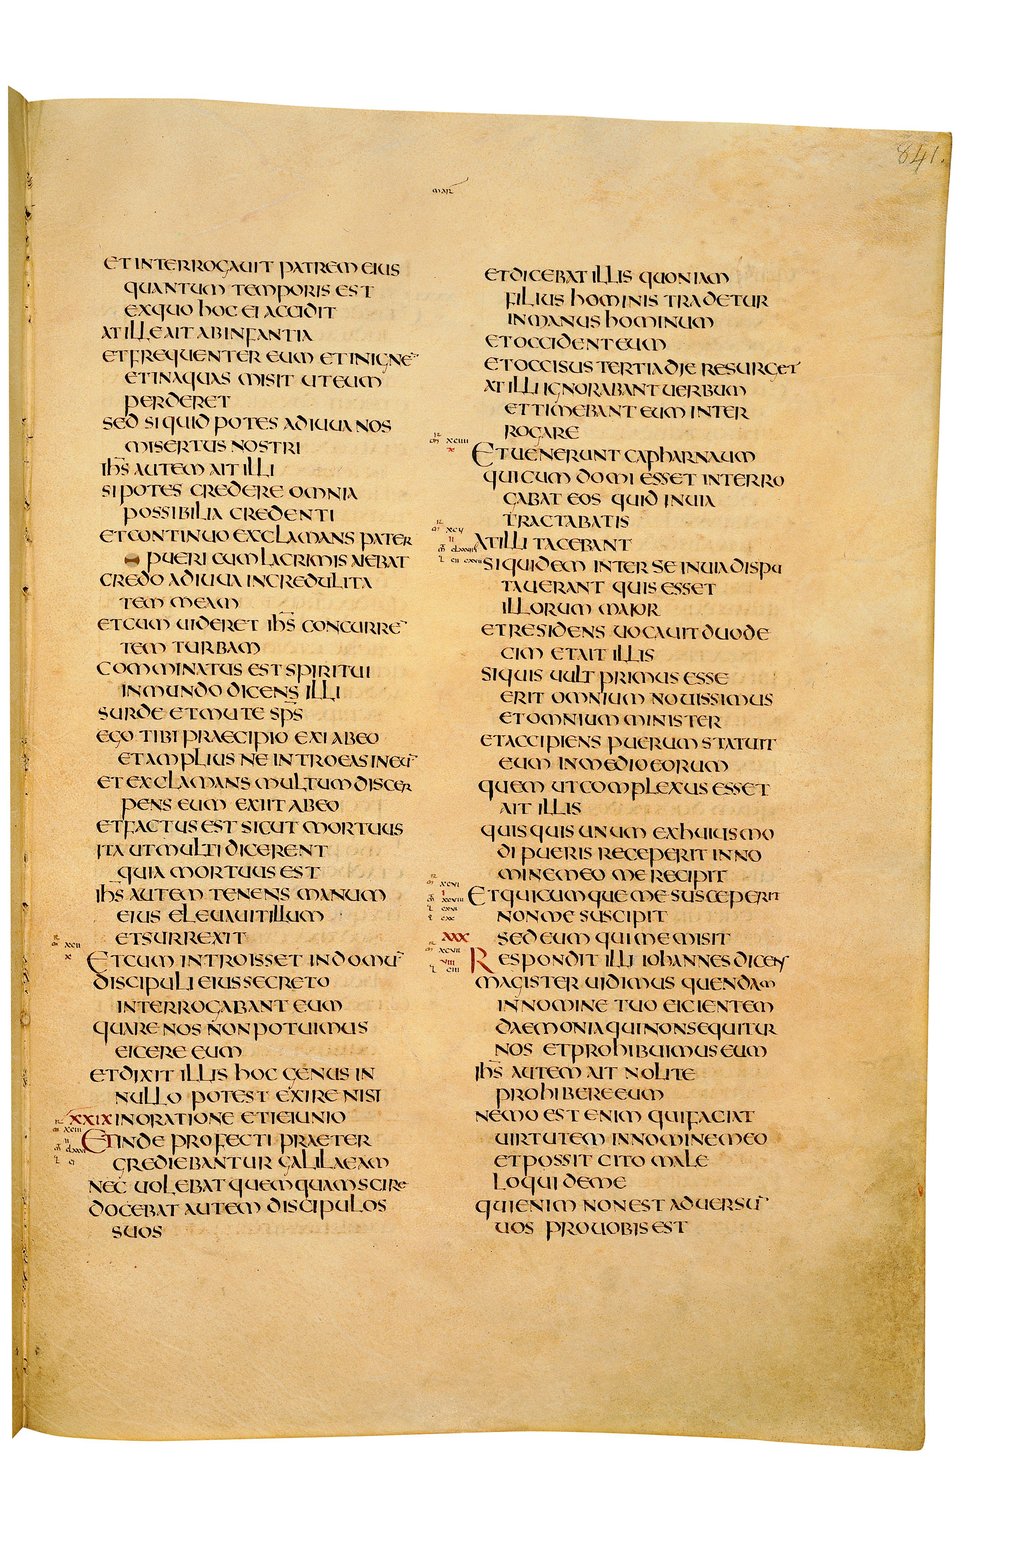 841.
MAR
ET INTERROGAUIT PATREM EIUS
QUANTUM TEMPORIS EST
EX QUO HOC EI ACCIDIT
AT ILLE AIT AB INFANTIA
ET FREQUENTER EUM ET IN IGNE̅
ET IN AQUAS MISIT UT EUM
PERDERET
SED SI QUID POTES ADIUUA NOS
MISERTUS NOSTRI
IH̅S AUTEM AIT ILLI
SI POTES CREDERE OMNIA
POSSIBILIA CREDENTI
ET CONTINUO EXCLAMANS PATER
PUERI CUM LACRIMIS AIEBAT
CREDO ADIUUA INCREDULITA
TEM MEAM
ET CUM UIDERET IH̅S CONCURRE̅
TEM TURBAM
COMMINATUS EST SPIRITUI
INMUNDO DICENS ILLI
SURDE ET MUTE SP̅S
EGO TIBI PRAECIPIO EXI AB EO
ET AMPLIUS NE INTROEAS IN EU̅
ET EXCLAMANS MULTUM DISCER
PENS EUM EXIIT AB EO
ET FACTUS EST SICUT MORTUUS
ITA UT MULTI DICERENT
QUIA MORTUUS EST
IH̅S AUTEM TENENS MANUM
EIUS ELEUAUIT ILLUM
ET SURREXIT
XCII
X
ET CUM INTROISSET IN DOMU̅
DISCIPULI EIUS SECRETO
INTERROGABANT EUM
QUARE NOS NON POTUIMUS
EICERE EUM
ET DIXIT ILLIS HOC GENUS IN
NULLO POTEST EXIRE NISI
XXIX IN ORATIONE ET IEIUNIO
XCIII
ET INDE PROFECTI PRAETER
GREDIEBANTUR GALILAEAM
NEC UOLEBAT QUEMQUAM SCIRE
DOCEBAT AUTEM DISCIPULOS
SUOS
ET DICEBAT ILLIS QUONIAM
FILIUS HOMINIS TRADETUR
IN MANUS HOMINUM
ET OCCIDENT EUM
ET OCCISUS TERTIA DIE RESURGET
AT ILLI IGNORABANT UERBUM
ET TIMEBANT EUM INTER
ROGARE
XCIIII
X
ET UENERUNT CAPHARNAUM
QUI CUM DOMI ESSET INTERRO
GABAT EOS QUID IN UIA
TRACTABATIS
XCV
II
AT ILLI TACEBANT
SIQUIDEM INTER SE IN UIA DISPU
TAUERANT QUIS ESSET
ILLORUM MAIOR
ET RESIDENS UOCAUIT DUODE
CIM ET AIT ILLIS
SI QUIS UULT PRIMUS ESSE
ERIT OMNIUM NOUISSIMUS
ET OMNIUM MINISTER
ET ACCIPIENS PUERUM STATUIT
EUM IN MEDIO EORUM
QUEM UT COMPLEXUS ESSET
AIT ILLIS
QUISQUIS UNUM EX HUIUSMO
DI PUERIS RECEPERIT IN NO
MINE MEO ME RECIPIT
XCVI
I
ET QUICUMQUE ME SUSCEPERIT
NON ME SUSCIPIT
XXX SED EUM QUI ME MISIT
XCVII
VIII
RESPONDIT ILLI IOHANNES DICENS
MAGISTER UIDIMUS QUENDAM
IN NOMINE TUO EICIENTEM
DAEMONIA QUI NON SEQUITUR
NOS ET PROHIBUIMUS EUM
IH̅S AUTEM AIT NOLITE
PROHIBERE EUM
NEMO EST ENIM QUI FACIAT
UIRTUTEM IN NOMINE MEO
ET POSSIT CITO MALE
LOQUI DE ME
QUI ENIM NON EST ADUERSU̅
UOS PRO UOBIS EST